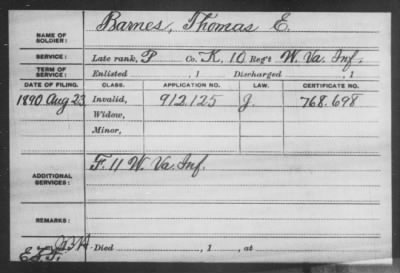 NAME OF SOLDIER: Barnes, Thomas E.
SERVICE: Late rank, P Co. K, 10 Reg't W. Va. Inf.
TERM OF SERVICE: Enlisted , 1 Discharged , 1
DATE OF FILING. CLASS. APPLICATION NO. LAW. CERTIFICATE NO.
1890 Aug 23 Invalid, 912.125 J. 768.698
Widow,
Minor,
ADDITIONAL SERVICES: F. 11 W. Va. Inf.
REMARKS:
Died , 1 , at